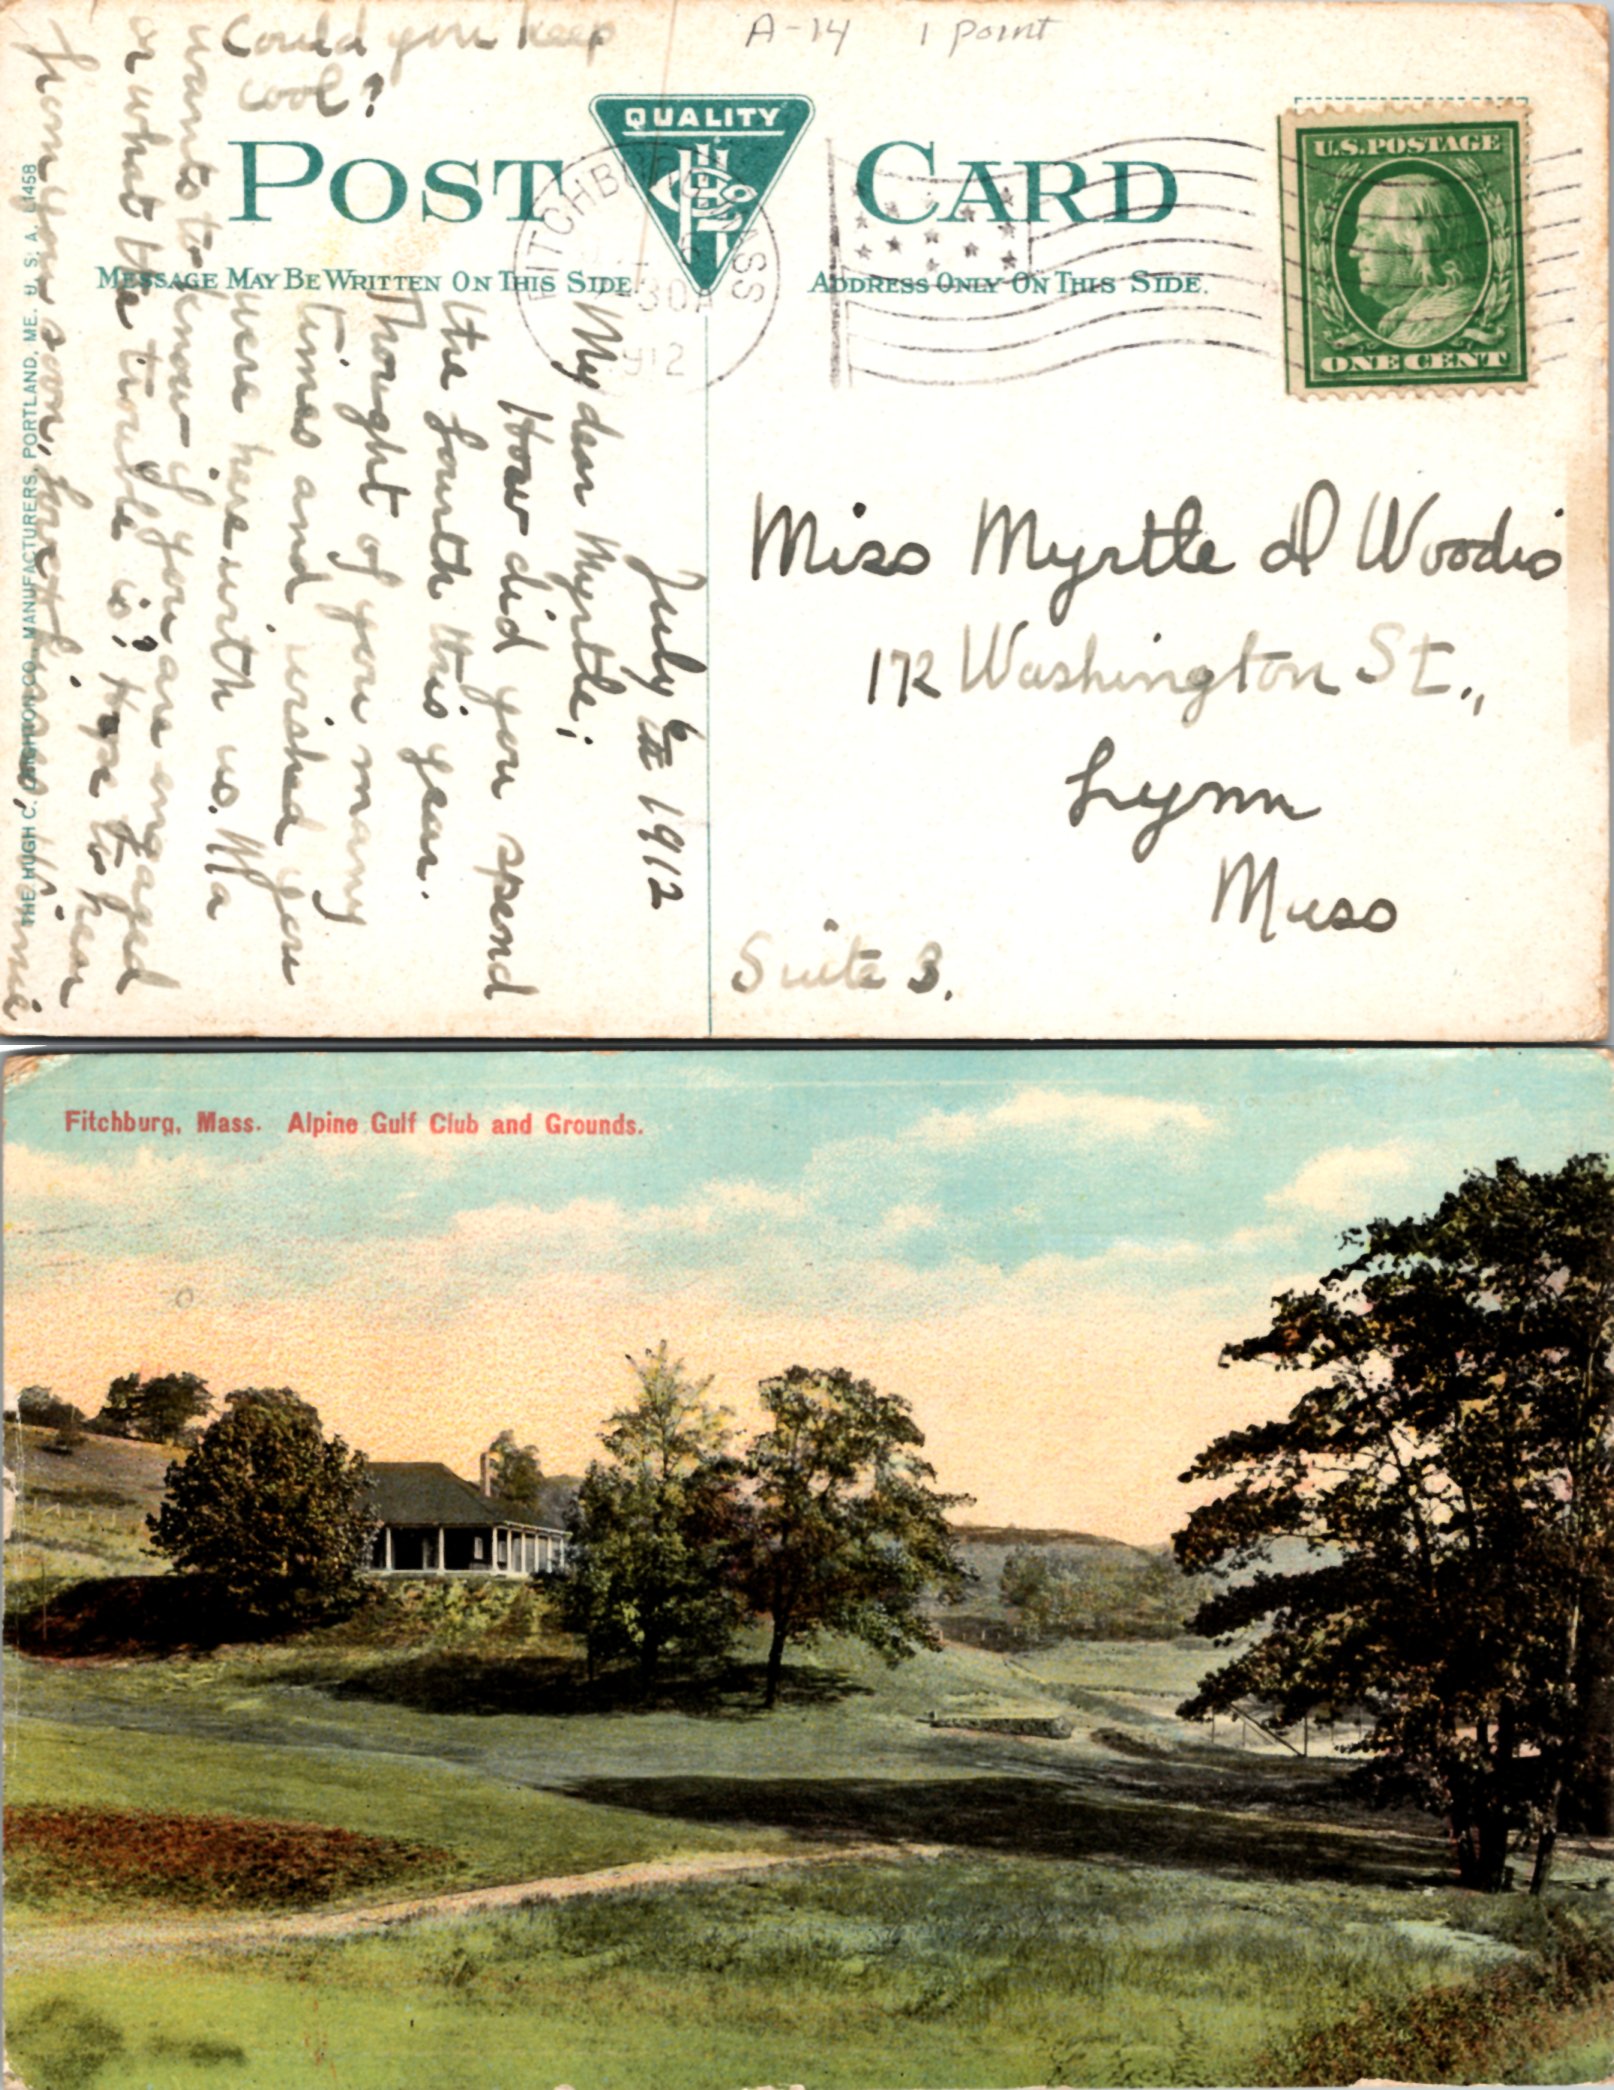 A-14 1 Point
Could you keep
cool?
QUALITY
POST CARD
FITCHBURG MASS
30A
1912
U.S. POSTAGE
ONE CENT
MESSAGE MAY BE WRITTEN ON THIS SIDE
ADDRESS ONLY ON THIS SIDE.
July 6th 1912
My dear Myrtle;
How did you spend
the fourth this year.
Thought of you many
times and wished you
were here with us. Ma
wants to know if you are engaged
or what the trouble is? Hope to hear
from you soon,
THE HUGH C. LEIGHTON CO., MANUFACTURERS, PORTLAND, ME. U. S. A. L1458
Miss Myrtle D Woodis
172 Washington St.,
Lynn
Mass
Suite 3.
Fitchburg, Mass. Alpine Gulf Club and Grounds.